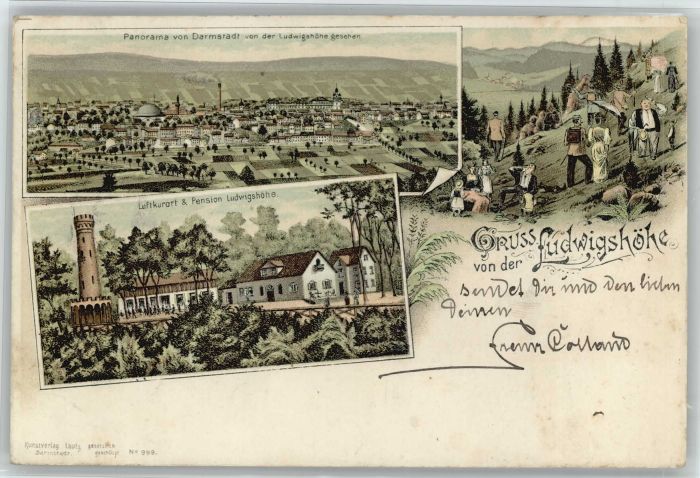 Panorama von Darmstadt von der Ludwigshöhe gesehen
Luftkurort & Pension Ludwigshöhe.
Gruss
von der Ludwigshöhe
sendet Dir und den lieben
Deinen
Kunstverlag Lautz gesetzlich
Darmstadt. geschützt No 999.